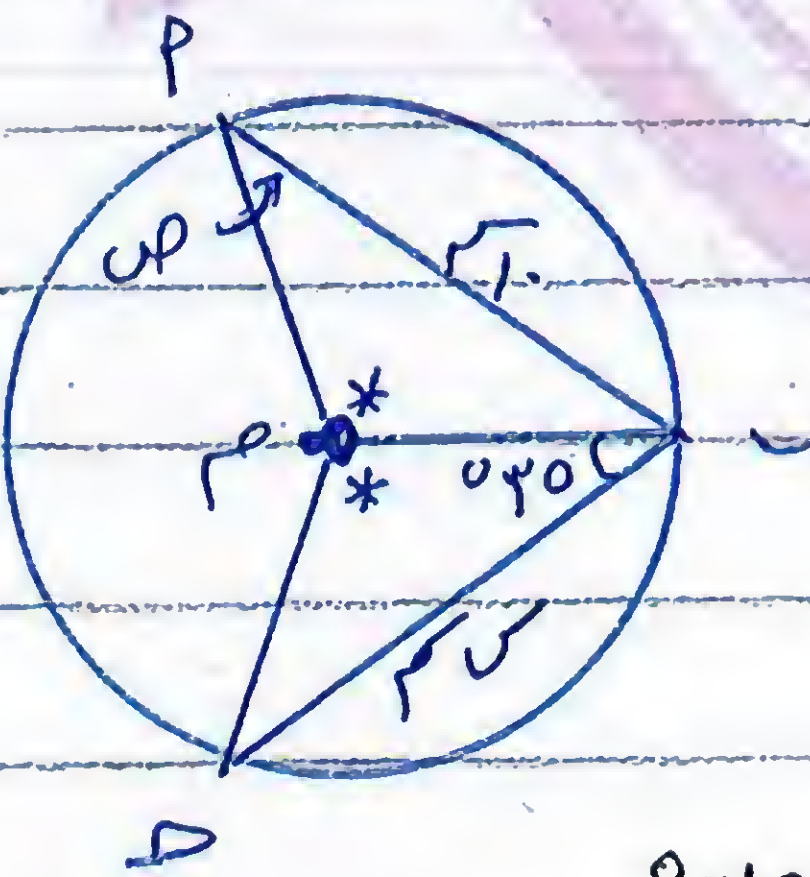 أ
ص
١٠ سم
م
٣٥°
ب
س سم